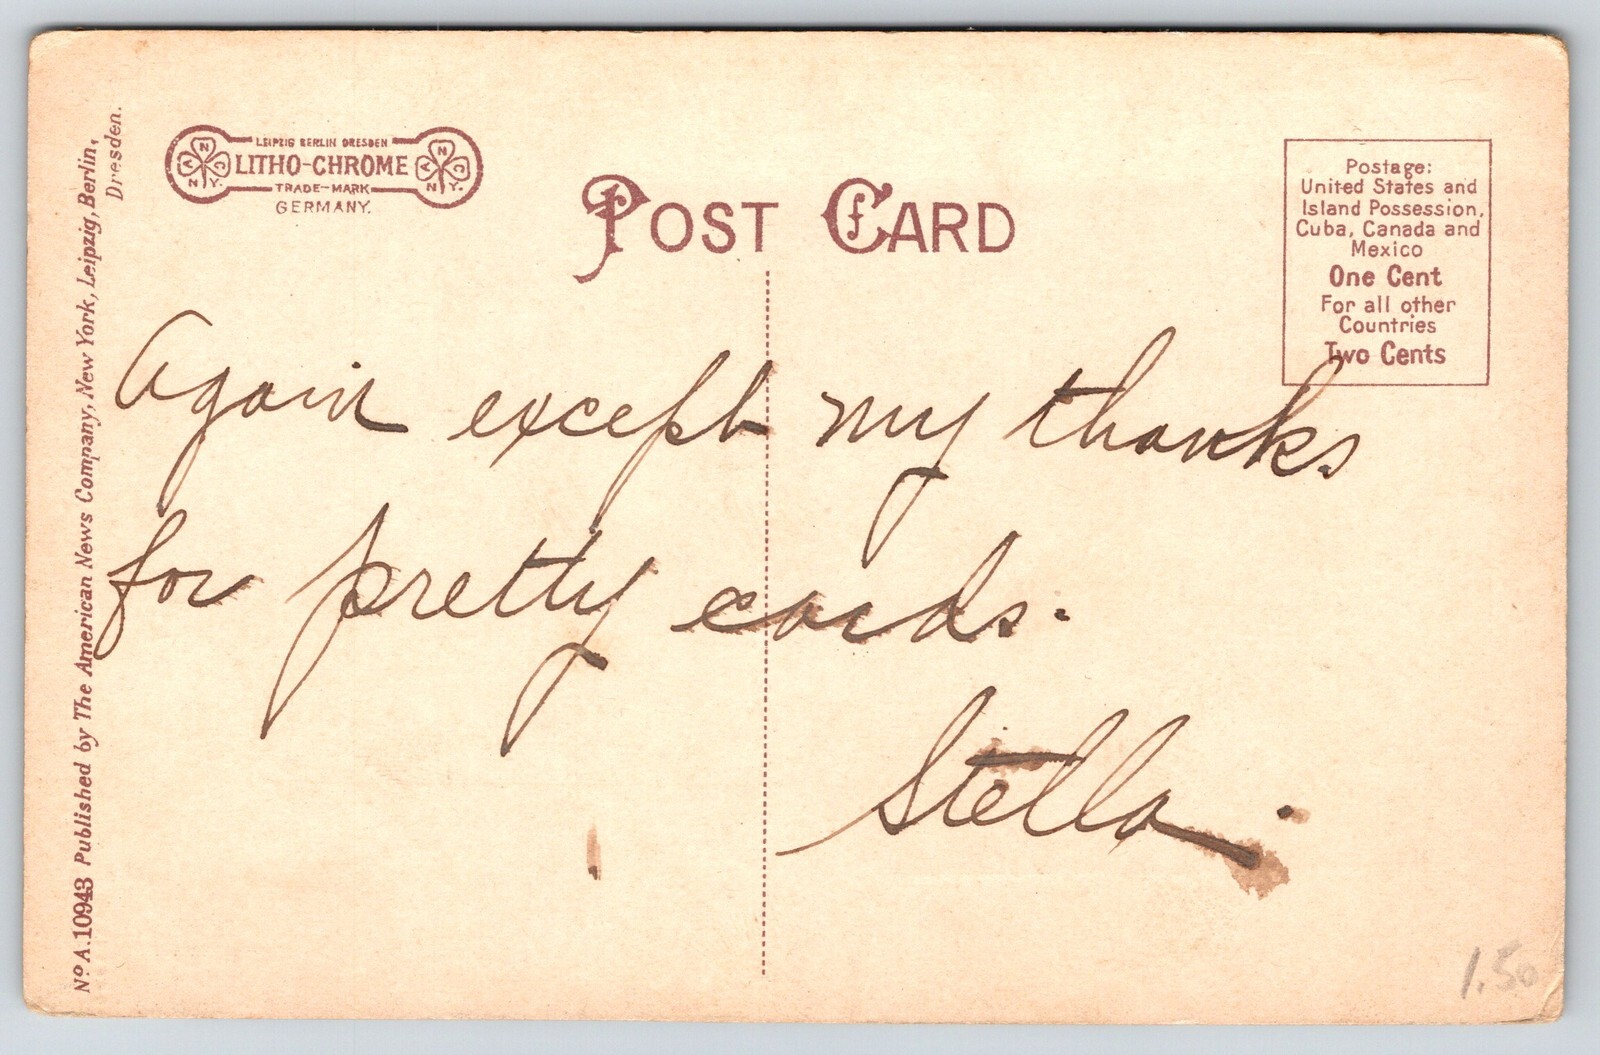 LEIPZIG BERLIN DRESDEN
LITHO-CHROME
TRADE-MARK
GERMANY.
A N C N.Y.
A N C N.Y.
POST CARD
Postage:
United States and
Island Possession,
Cuba, Canada and
Mexico
One Cent
For all other
Countries
Two Cents
Again except my thanks
for pretty cards.
Stella.
No A.10943 Published by The American News Company, New York, Leipzig, Berlin,
Dresden.
1.50